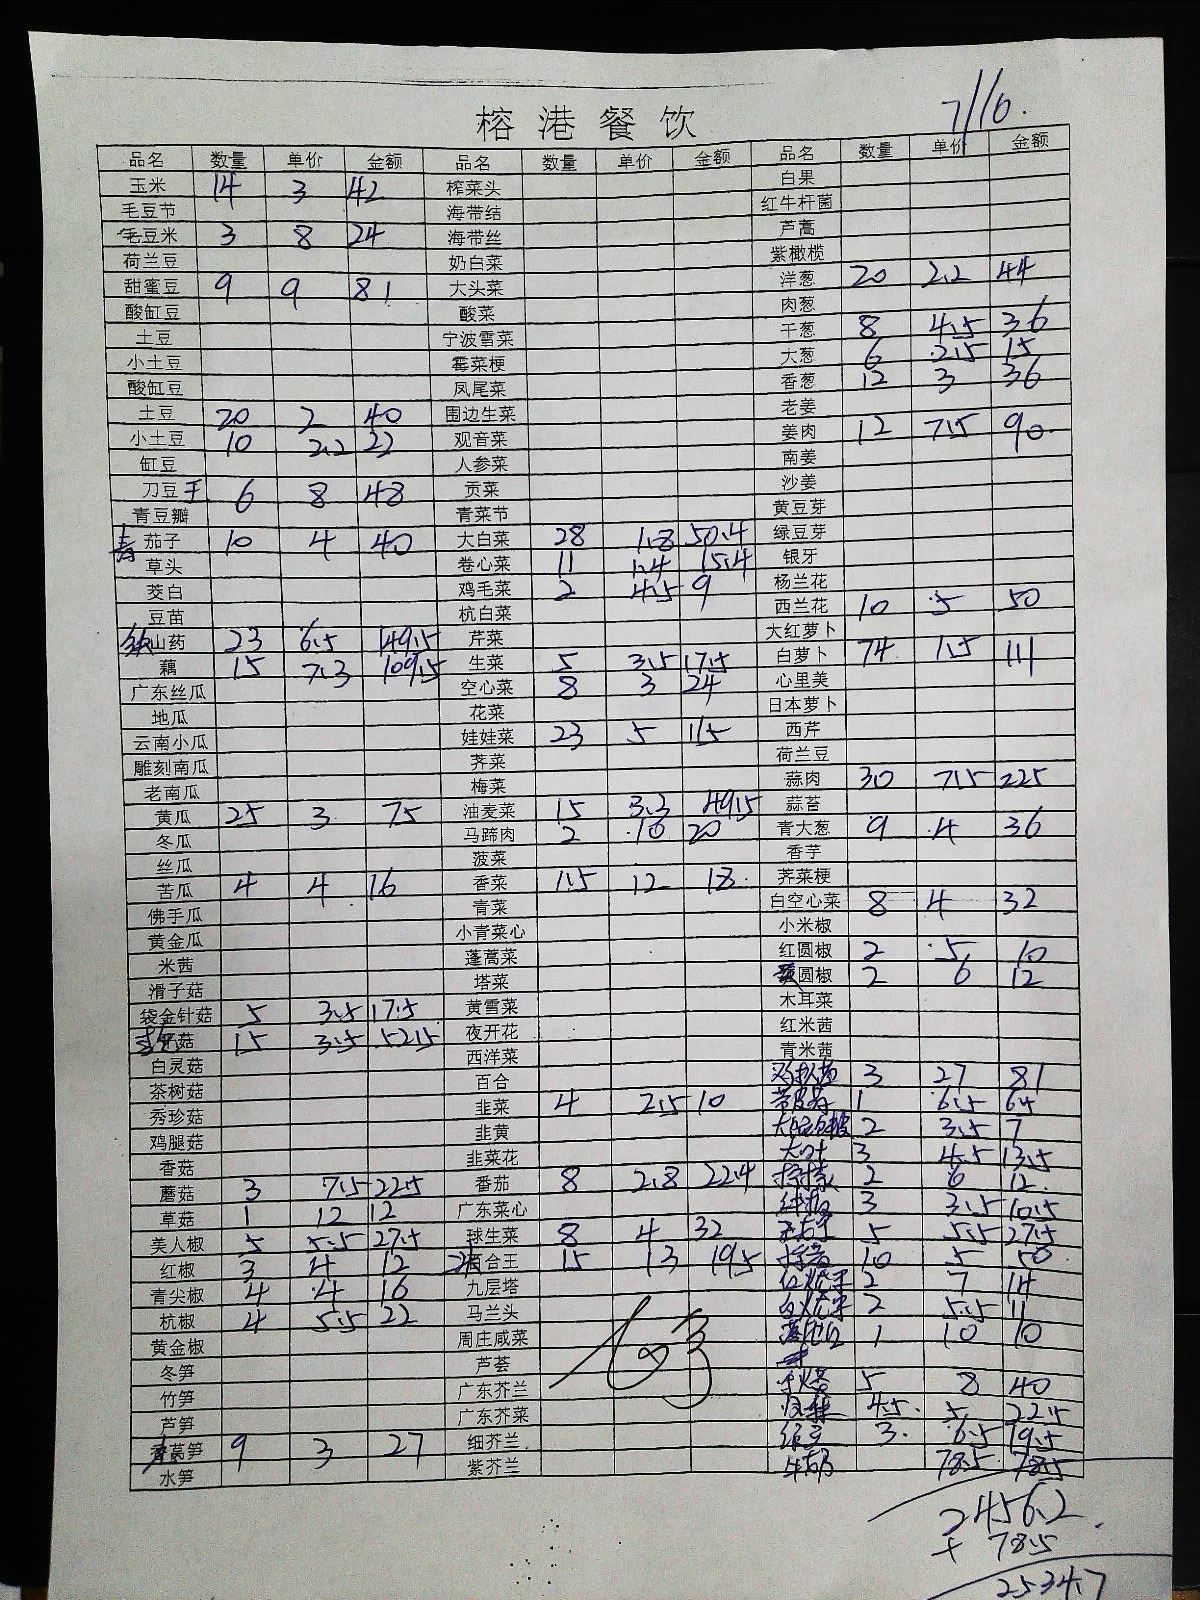 榕港餐饮
7/16.
品名 数量 单价 金额 品名 数量 单价 金额 品名 数量 单价 金额
玉米 14 3 42 榨菜头 白果
毛豆节 海带结 红牛杆菌
毛豆米 3 8 24 海带丝 芦蒿
荷兰豆 奶白菜 紫橄榄
甜蜜豆 9 9 81 大头菜 洋葱 20 2.2 44
酸缸豆 酸菜 肉葱
土豆 宁波雪菜 干葱 8 4.5 36
小土豆 霉菜梗 大葱 6 2.5 15
酸缸豆 凤尾菜 香葱 12 3 36
土豆 20 2 40 围边生菜 老姜
小土豆 10 2.2 22 观音菜 姜肉 12 7.5 90
缸豆 人参菜 南姜
刀豆 6 8 48 贡菜 沙姜
青豆瓣 青菜节 黄豆芽
青茄子 10 4 40 大白菜 28 1.8 50.4 绿豆芽
草头 卷心菜 11 1.4 15.4 银牙
茭白 鸡毛菜 2 4.5 9 杨兰花
豆苗 杭白菜 西兰花 10 5 50
山药 23 6.5 149.5 芹菜 大红萝卜
藕 15 7.3 109.5 生菜 5 3.5 17.5 白萝卜 74 1.5 111
广东丝瓜 空心菜 8 3 24 心里美
地瓜 花菜 日本萝卜
云南小瓜 娃娃菜 23 5 115 西芹
雕刻南瓜 荠菜 荷兰豆
老南瓜 梅菜 蒜肉 30 7.5 225
黄瓜 25 3 75 油麦菜 15 3.3 49.5 蒜苔
冬瓜 马蹄肉 2 10 20 青大葱 9 4 36
丝瓜 菠菜 香芋
苦瓜 4 4 16 香菜 1.5 12 18 荠菜梗
佛手瓜 青菜 白空心菜 8 4 32
黄金瓜 小青菜心 小米椒
米茜 蓬蒿菜 红圆椒 2 5 10
滑子菇 塔菜 圆椒 2 6 12
袋金针菇 5 3.5 17.5 黄雪菜 木耳菜
菇 15 3.5 52.5 夜开花 红米茜
白灵菇 西洋菜 青米茜
茶树菇 百合 3 27 81
秀珍菇 韭菜 4 2.5 10 1 6.5 6.5
鸡腿菇 韭黄 2 3.5 7
香菇 韭菜花 大叶 3 4.5 13.5
蘑菇 3 7.5 22.5 番茄 8 2.8 22.4 2 6 12
草菇 1 12 12 广东菜心 3 3.5 10.5
美人椒 5 5.5 27.5 球生菜 8 4 32 5 5.5 27.5
红椒 3 4 12 百合王 15 13 195 10 5 50
青尖椒 4 4 16 九层塔 2 7 14
杭椒 4 5.5 22 马兰头 2 5.5 11
黄金椒 周庄咸菜 1 10 10
冬笋 芦荟
竹笋 广东芥兰 5 8 40
芦笋 广东芥菜 4.5 5 22.5
莴笋 9 3 27 细芥兰 绿豆 3 6.5 19.5
水笋 紫芥兰 牛奶 78.5 78.5
2456.2
+ 78.5
2534.7